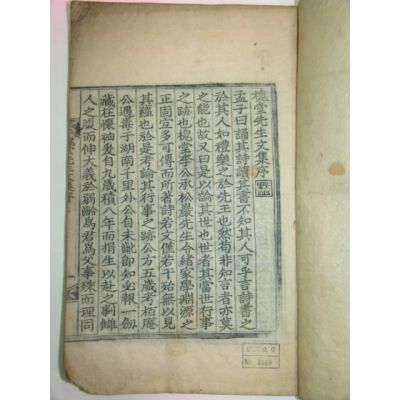 槐堂先生文集序
孟子曰誦其詩讀其書不知其人可乎言詩書之
於其人如禮樂之於先王也然苟非知言者亦莫
之能也故又曰是以論其世也世者其當世行事
之跡也槐堂李公承松巖先生今緖家學淵源之
正固宜多可傳而所著詩若文僅若干殆無以見
其蘊也於是考論其行事之跡公方五歲考栢庵
公遇毒于湖南千里外公自未齔卽知必報一劒
藏在懷袖爰自九歲積八年而捐生以赴之剚讎
人之腹而伸大義於弱齡爲君爲父事殊而理同